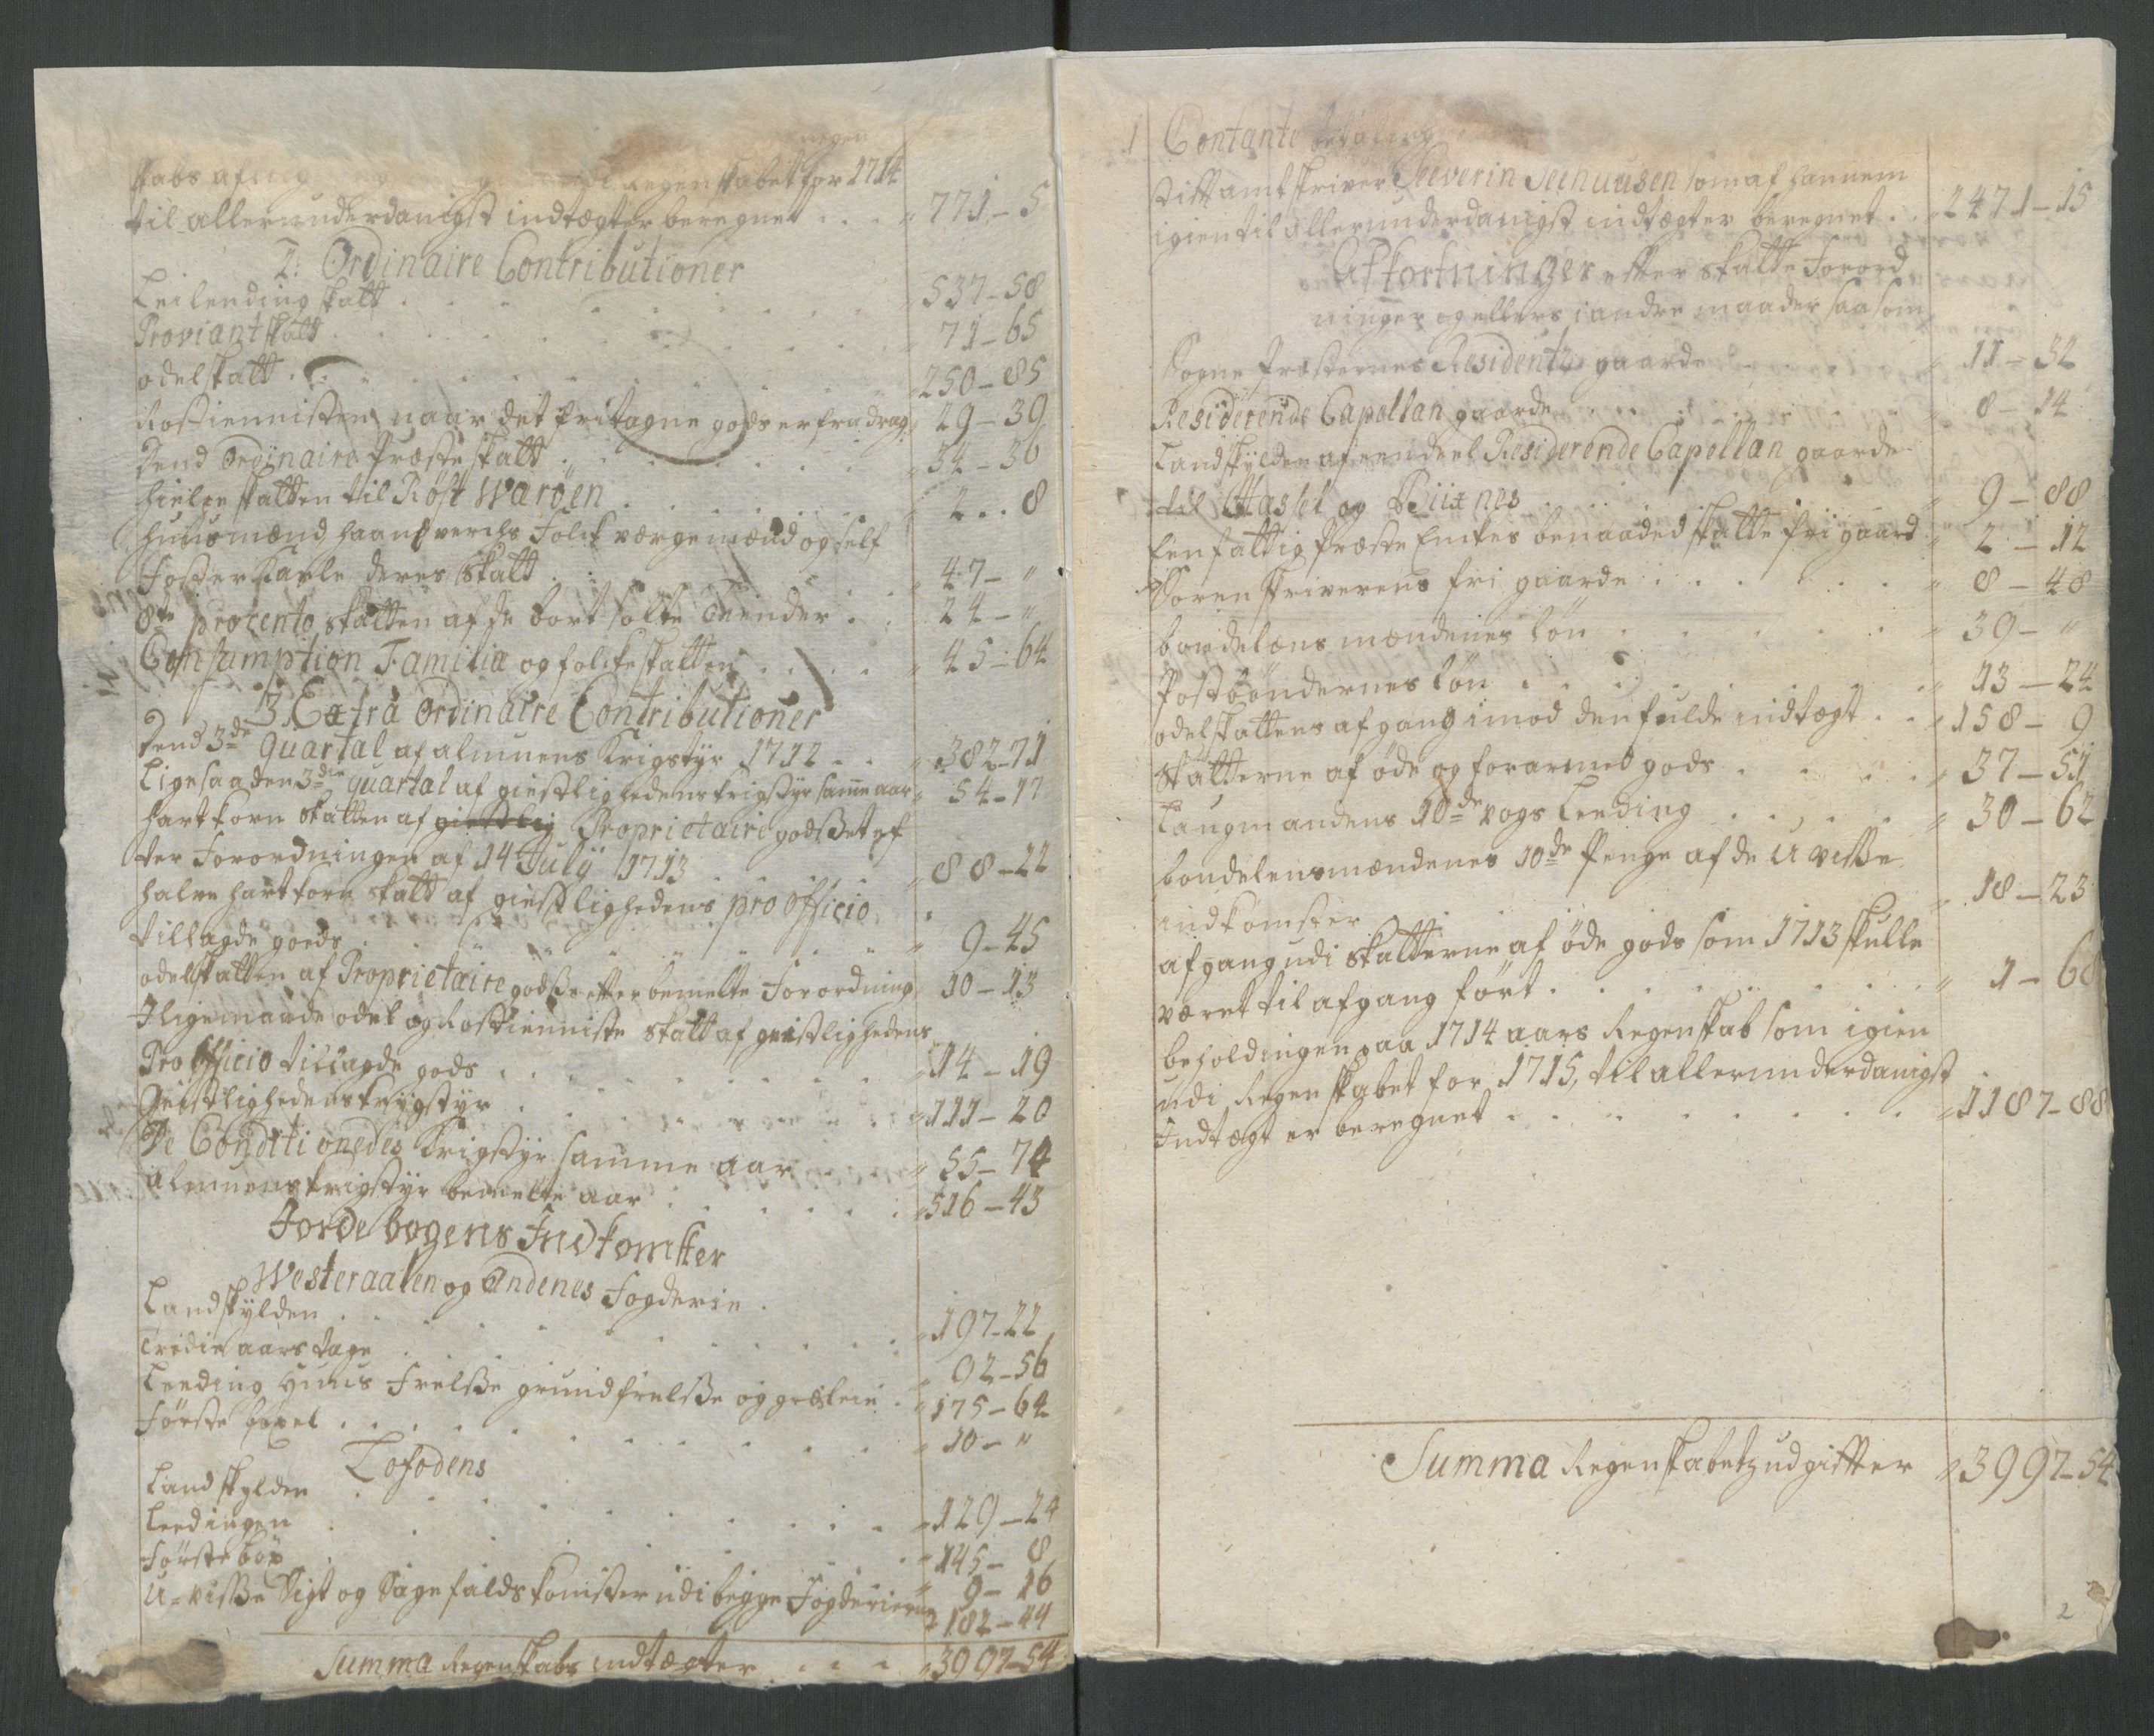 Regenskabet for 1714
til allerunderdanigst indtægter beregnet . . . " 771 - 5
2: Ordinaire Contributioner
Leilending skatt . . . " 537 - 58
Proviant skatt . . . " 71 - 65
odelskatt . . . " 250 - 85
Rostiennisten naar det fritagne gods er fradrag " 29 - 39
Dend Ordinaire Præste skatt . . . " 34 - 30
hielpe skatten til Røst Warøen . . . " 2 . . 8
huusmænd haandverchs Folck værge mænd og self
foster Karle deres skatt . . . " 47 - "
8te procento skatten af de bort solte Tiender . . 24 - "
Consumption Familia og folckeskatten . . . " 45 - 64
3 Extra Ordinaire Contributioner
Dend 3de quartal af almuens Krigstyr 1712 . . " 382 - 71
Ligesaa den 3die quartal af giestlighedens krigstyr samme aar " 54 - 17
hartkorn skatten af giestlig Proprietaire godset ef
ter Forordningen af 14 July 1713 . . . " 88 - 22
halve hartkorn skatt af giestlighedens pro officio
tillagde goeds . . . " 9 - 45
odelskatten af Proprietaire godse efter bemelte Forordning " 10 - 13
Iligemaade odel og Rostienniste skatt af geistlighedens
Pro officio tillagde gods . . . " 14 - 19
Geistlighedens krygstyr . . . " 111 - 20
De Conditionedes Krigstyr samme aar . . . " 55 - 74
almuens krigstyr bemelte aar . . . " 516 - 43
Jordebogens Indkomster
Westeraalen og Andenes Fogderie .
Landskylden . . . " 197 - 22
tredie aars tage . . . " 92 - 56
Leeding Huus Frelsse grundfrelsse og . " 175 - 64
første bøxel . . . " 10 - "
Lofodens
Landskylden . . . " 129 - 24
Leedingen . . . " 145 - 8
første bøx . . . " 9 - 16
U-visse Sigt og Sagefalds komster udi begge Fogderierne " 182 - 44
Summa Regenskabs indtægter . . . " 3997 - 54
1 Contante betaling
stiftamtskriver Seeverin Seehuusen som af hannem
igien til allerunderdanigst indtægter beregnet . . " 2471 - 15
Afkortninger efter skatte Forord
ninger og ellers i andre maader saasom
Sogne Præsternes Residentz gaarde . . . " 11 - 32
Residerende Capellan gaarde . . . " 8 - 14
Landskylden af een deel Residerende Capellan gaarde
til Hassel og Buxnes . . . " 9 - 88
Een fattig Præste Enckes benaaded skatte fri gaard " 2 - 12
Sorenskriverens fri gaarde . . . " 8 - 48
bondelens mændenes Løn . . . " 39 - "
Postbøndernes Løn . . . " 13 - 24
odelskattens afgang imod den fulde indtægt . . " 158 - 9
skatterne af øde og forarmed gods . . . " 37 - 51
Laugmandens 10de vogs Leeding . . . " 30 - 62
bondelensmændenes 10de Penge af de U visse
indkomster . . . " 18 - 23
afgang udi skatterne af øde gods som 1713 skulle
været til afgang ført . . . " 1 - 68
beholdingen paa 1714 aars Regenskab som igien
udi Regenskabet for 1715, til allerunderdanigst
Indtægt er beregnet . . . " 1187 - 88
Summa Regenskabets udgifter " 3997 - 54
2